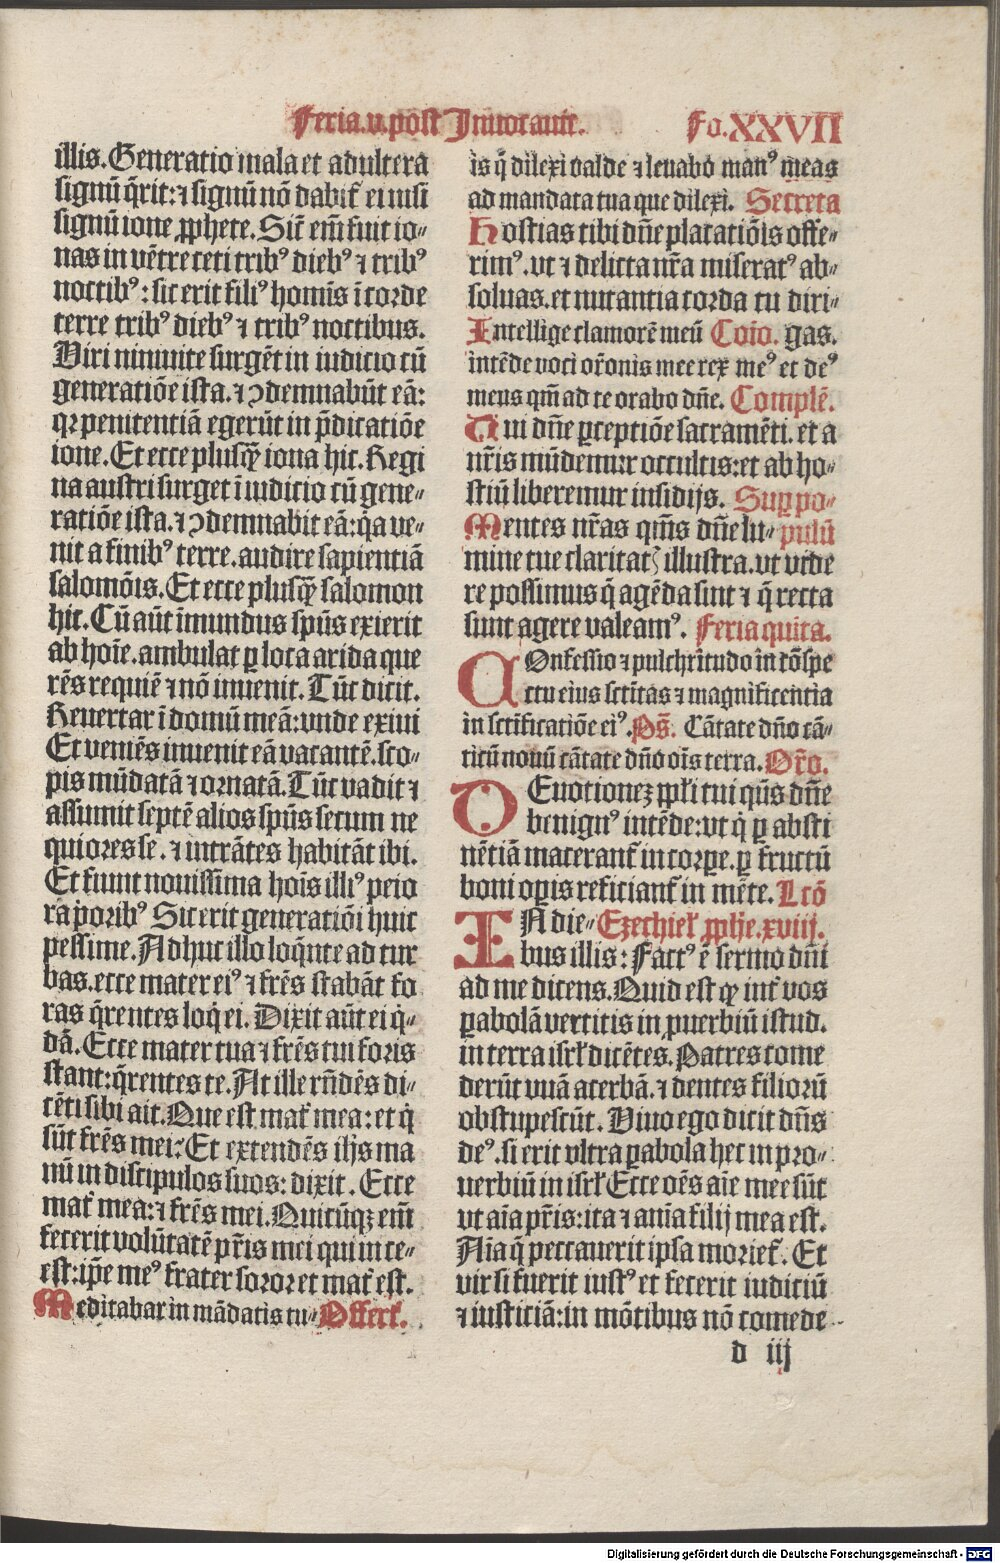 Feria.v.post Inuocauit. Fo.XXVII
illis. Generatio mala et adultera
signũ q̃rit: ⁊ signũ nõ dabit̃ ei nisi
signũ ione ꝓphete. Sic̃ em̃ fuit io⸗
nas in vẽtre ceti tribꝰ diebꝰ ⁊ tribꝰ
noctibꝰ: sic erit filiꝰ homĩs ĩ corde
terre tribꝰ diebꝰ ⁊ tribꝰ noctibus.
Viri niniuite surgẽt in iudicio cũ
generatiõe ista. ⁊ ꝯdemnabũt eã:
qꝛ penitentiã egerũt in p̃dicatiõe
ione. Et ecce plusqꝫ iona hic. Regi
na austri surget ĩ iudicio cũ gene⸗
ratiõe ista. ⁊ ꝯdemnabit eã: q̃a ve⸗
nit a finibꝰ terre. audire sapientiã
salomõis. Et ecce plusqꝫ salomon
hic. Cũ aũt ĩmundus sp̃us exierit
ab hoĩe. ambulat ꝑ loca arida que
rẽs requiẽ ⁊ nõ inuenit. Tũc dicit.
Reuertar ĩ domũ meã: vnde exiui
Et veniẽs inuenit eã vacantẽ. sco⸗
pis mũdatã ⁊ ornatã. Tũc vadit ⁊
assumit septẽ alios sp̃us secum ne
quiores se. ⁊ intrãtes habitãt ibi.
Et fiunt nouissima hoĩs illiꝰ peio
ra p̃oribꝰ Sic erit generatiõi huic
pessime. Adhuc illo loq̃nte ad tur
bas. ecce mater eiꝰ ⁊ frẽs stabãt fo
ras q̃rentes loq̇ ei. Dixit aũt ei q̇⸗
dã. Ecce mater tua ⁊ frẽs tui foris
stant: q̃rentes te. At ille rñdẽs di⸗
cẽti sibi ait. Que est mat̃ mea: et q̇
sũt frẽs mei: Et extendẽs ihs ma
nũ in discipulos suos: dixit. Ecce
mat̃ mea: ⁊ frẽs mei. Quicũqꝫ em̃
fecerit volũtatẽ pr̃is mei qui in ce⸗
est: ip̃e meꝰ frater soror et mat̃ est.
Meditabar in mãdatis tu⸗ Offert̃.
is q̃ dilexi valde ⁊ leuabo manꝰ meas
ad mandata tua que dilexi. Secreta
Hostias tibi dñe placatiõis offe⸗
rimꝰ. vt ⁊ delicta nr̃a miseratꝰ ab⸗
soluas. et nutantia corda tu diri⸗
Intellige clamorẽ meũ Cõio. gas.
intẽde voci or̃onis mee rex meꝰ et deꝰ
meus qm̃ ad te orabo dñe. Complẽ.
Tui dñe ꝑceptiõe sacramẽti. et a
nr̃is mũdemur occultis: et ab ho⸗
stiũ liberemur insidijs. Suꝑ po⸗
Mentes nr̃as qm̃s dñe lu⸗ pulũ
mine tue claritatꝭ illustra. vt vide
re possimus q̃ agẽda sint ⁊ q̃ recta
sunt agere valeamꝰ. Feria quĩta.
COnfessio ⁊ pulchritudo in cõspe
ctu eius sctĩtas ⁊ magnificentia
in sctificatiõe eiꝰ. Ps̃. Cãtate dño cã⸗
ticũ nouũ cãtate dño oĩs terra. Or̃o.
DEuotionez ppl̃i tui qũs dñe
benignꝰ intẽde: vt q̇ ꝑ absti
nẽtiã macerant̃ in corꝑe. ꝑ fructũ
boni oꝑis reficiant̃ in mẽte. Lcõ
IN die⸗ Ezechiel̃ ꝓphe. xviij.
bus illis: Factꝰ ẽ sermo dñi
ad me dicens. Quid est ꝙ int̃ vos
ꝑabolã vertitis in ꝓuerbiũ istud.
in terra isrl̃ dicẽtes. Patres come
derũt vuã acerbã. ⁊ dentes filiorũ
obstupescũt. Viuo ego dicit dñs
deꝰ. si erit vltra ꝑabola hec in pro⸗
uerbiũ in isrl̃ Ecce oẽs aĩe mee sũt
vt aĩa pr̃is: ita ⁊ anĩa filij mea est.
Aĩa q̃ peccauerit ipsa moriet̃. Et
vir si fuerit iustꝰ et fecerit iudiciũ
⁊ iusticiã: in mõtibus nõ comede⸗
d iij
Digitalisierung gefördert durch die Deutsche Forschungsgemeinschaft - DFG